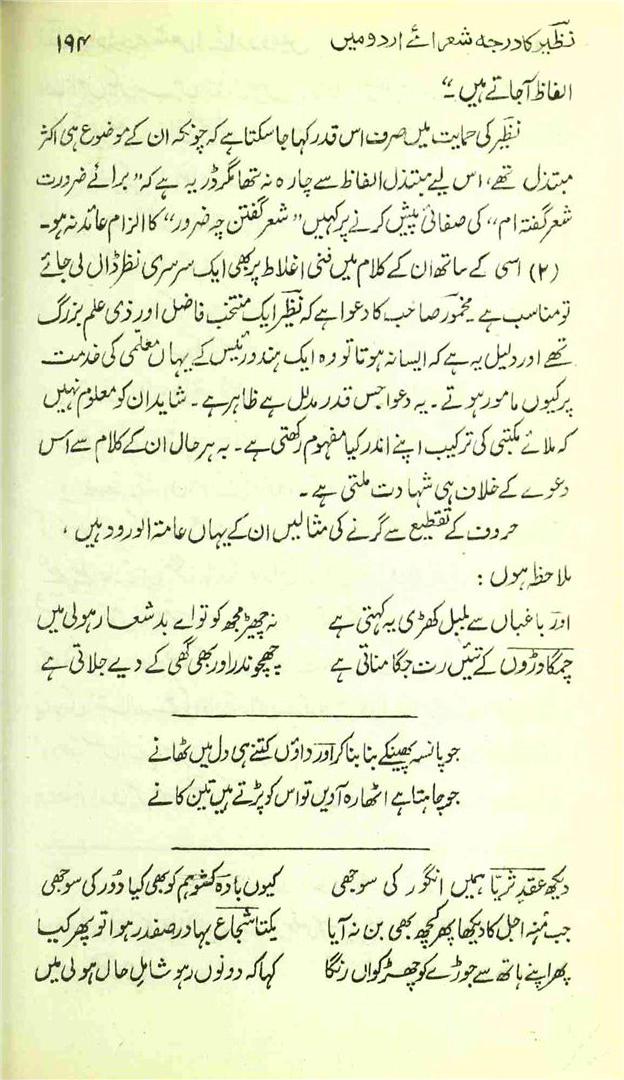 نظیر کا درجہ شعرائے اردو میں ۱۹۴
الفاظ آجاتے ہیں ۔“
نظیر کی حمایت میں صرف اس قدر کہا جا سکتا ہے کہ چونکہ ان کے موضوع ہی اکثر
مبتذل تھے، اس لیے مبتذل الفاظ سے چارہ نہ تھا مگر ڈر یہ ہے کہ ”برائے ضرورت
شعر گفتہ ام“ کی صفائی پیش کرنے پر کہیں ”شعر گفتن چہ ضرور“ کا الزام عائد نہ ہو۔
(۲) اسی کے ساتھ ان کے کلام میں فنی اغلاط پر بھی ایک سرسری نظر ڈال لی جائے
تو مناسب ہے۔ مخمور صاحب کا دعوا ہے کہ نظیر ایک منتخب فاضل اور ذی علم بزرگ
تھے اور دلیل یہ ہے کہ ایسا نہ ہوتا تو وہ ایک ہندو رئیس کے یہاں معلمی کی خدمت
پر کیوں مامور ہوتے۔ یہ دعوا جس قدر مدلل ہے ظاہر ہے۔ شاید ان کو معلوم نہیں
کہ ملائے مکتبی کی ترکیب اپنے اندر کیا مفہوم رکھتی ہے۔ بہ ہر حال ان کے کلام سے اس
دعوے کے خلاف ہی شہادت ملتی ہے۔
حروف کے تقطیع سے گرنے کی مثالیں ان کے یہاں عامتہ الورود ہیں،
ملاحظہ ہوں:
اور باغباں سے بلبل کھڑی یہ کہتی ہے نہ چھیڑ مجھ کو تو اے بد شعار ہولی میں
چمگادڑوں کے تئیں رت جگا مناتی ہے چھچوندر اور بھی گھی کے دیے جلاتی ہے
جو پانسہ پھینکے بنا بنا کر اور داؤں کتنے ہی دل میں ٹھانے
جو چاہتا ہے اٹھارہ آویں تو اس کو پڑتے ہیں تین کانے
دیکھ عقدِ ثریا ہمیں انگور کی سوجھی کیوں بادہ کشو ہم کو بھی کیا دُور کی سوجھی
جب مُنہ اجل کا دیکھا پھر کچھ بھی بن نہ آیا یکتا شجاع بہادر صفدر ہوا تو پھر کیا
پھر اپنے ہاتھ سے جوڑے کو چھڑکواں رنگا کہا کہ دونوں رہو شاملِ حال ہولی میں